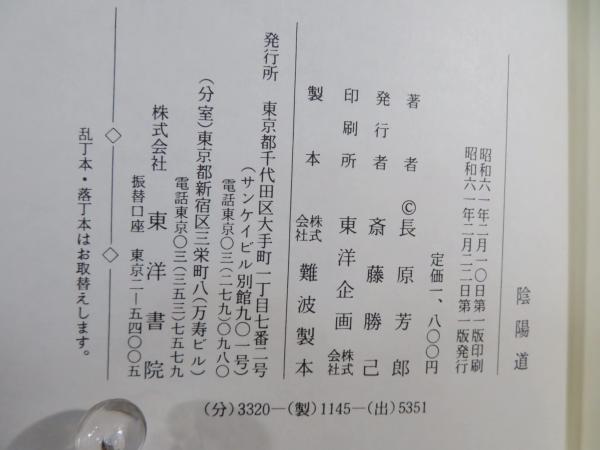 陰陽道
昭和六一年二月一〇日第一版印刷
昭和六一年二月二二日第一版発行
定価一、八〇〇円
著者 ©長原芳郎
発行者 斎藤勝己
印刷所 東洋企画株式会社
製本 株式会社難波製本
発行所 東京都千代田区大手町一丁目七番二号
(サンケイビル別館九〇一号)
電話東京〇三(二七九)〇九八〇
(分室)東京都新宿区三栄町八(万寿ビル)
電話東京〇三(三五三)七五七九
株式会社 東洋書院
振替口座 東京二―五四〇〇五
乱丁本・落丁本はお取替えします。
(分)3320―(製)1145―(出)5351